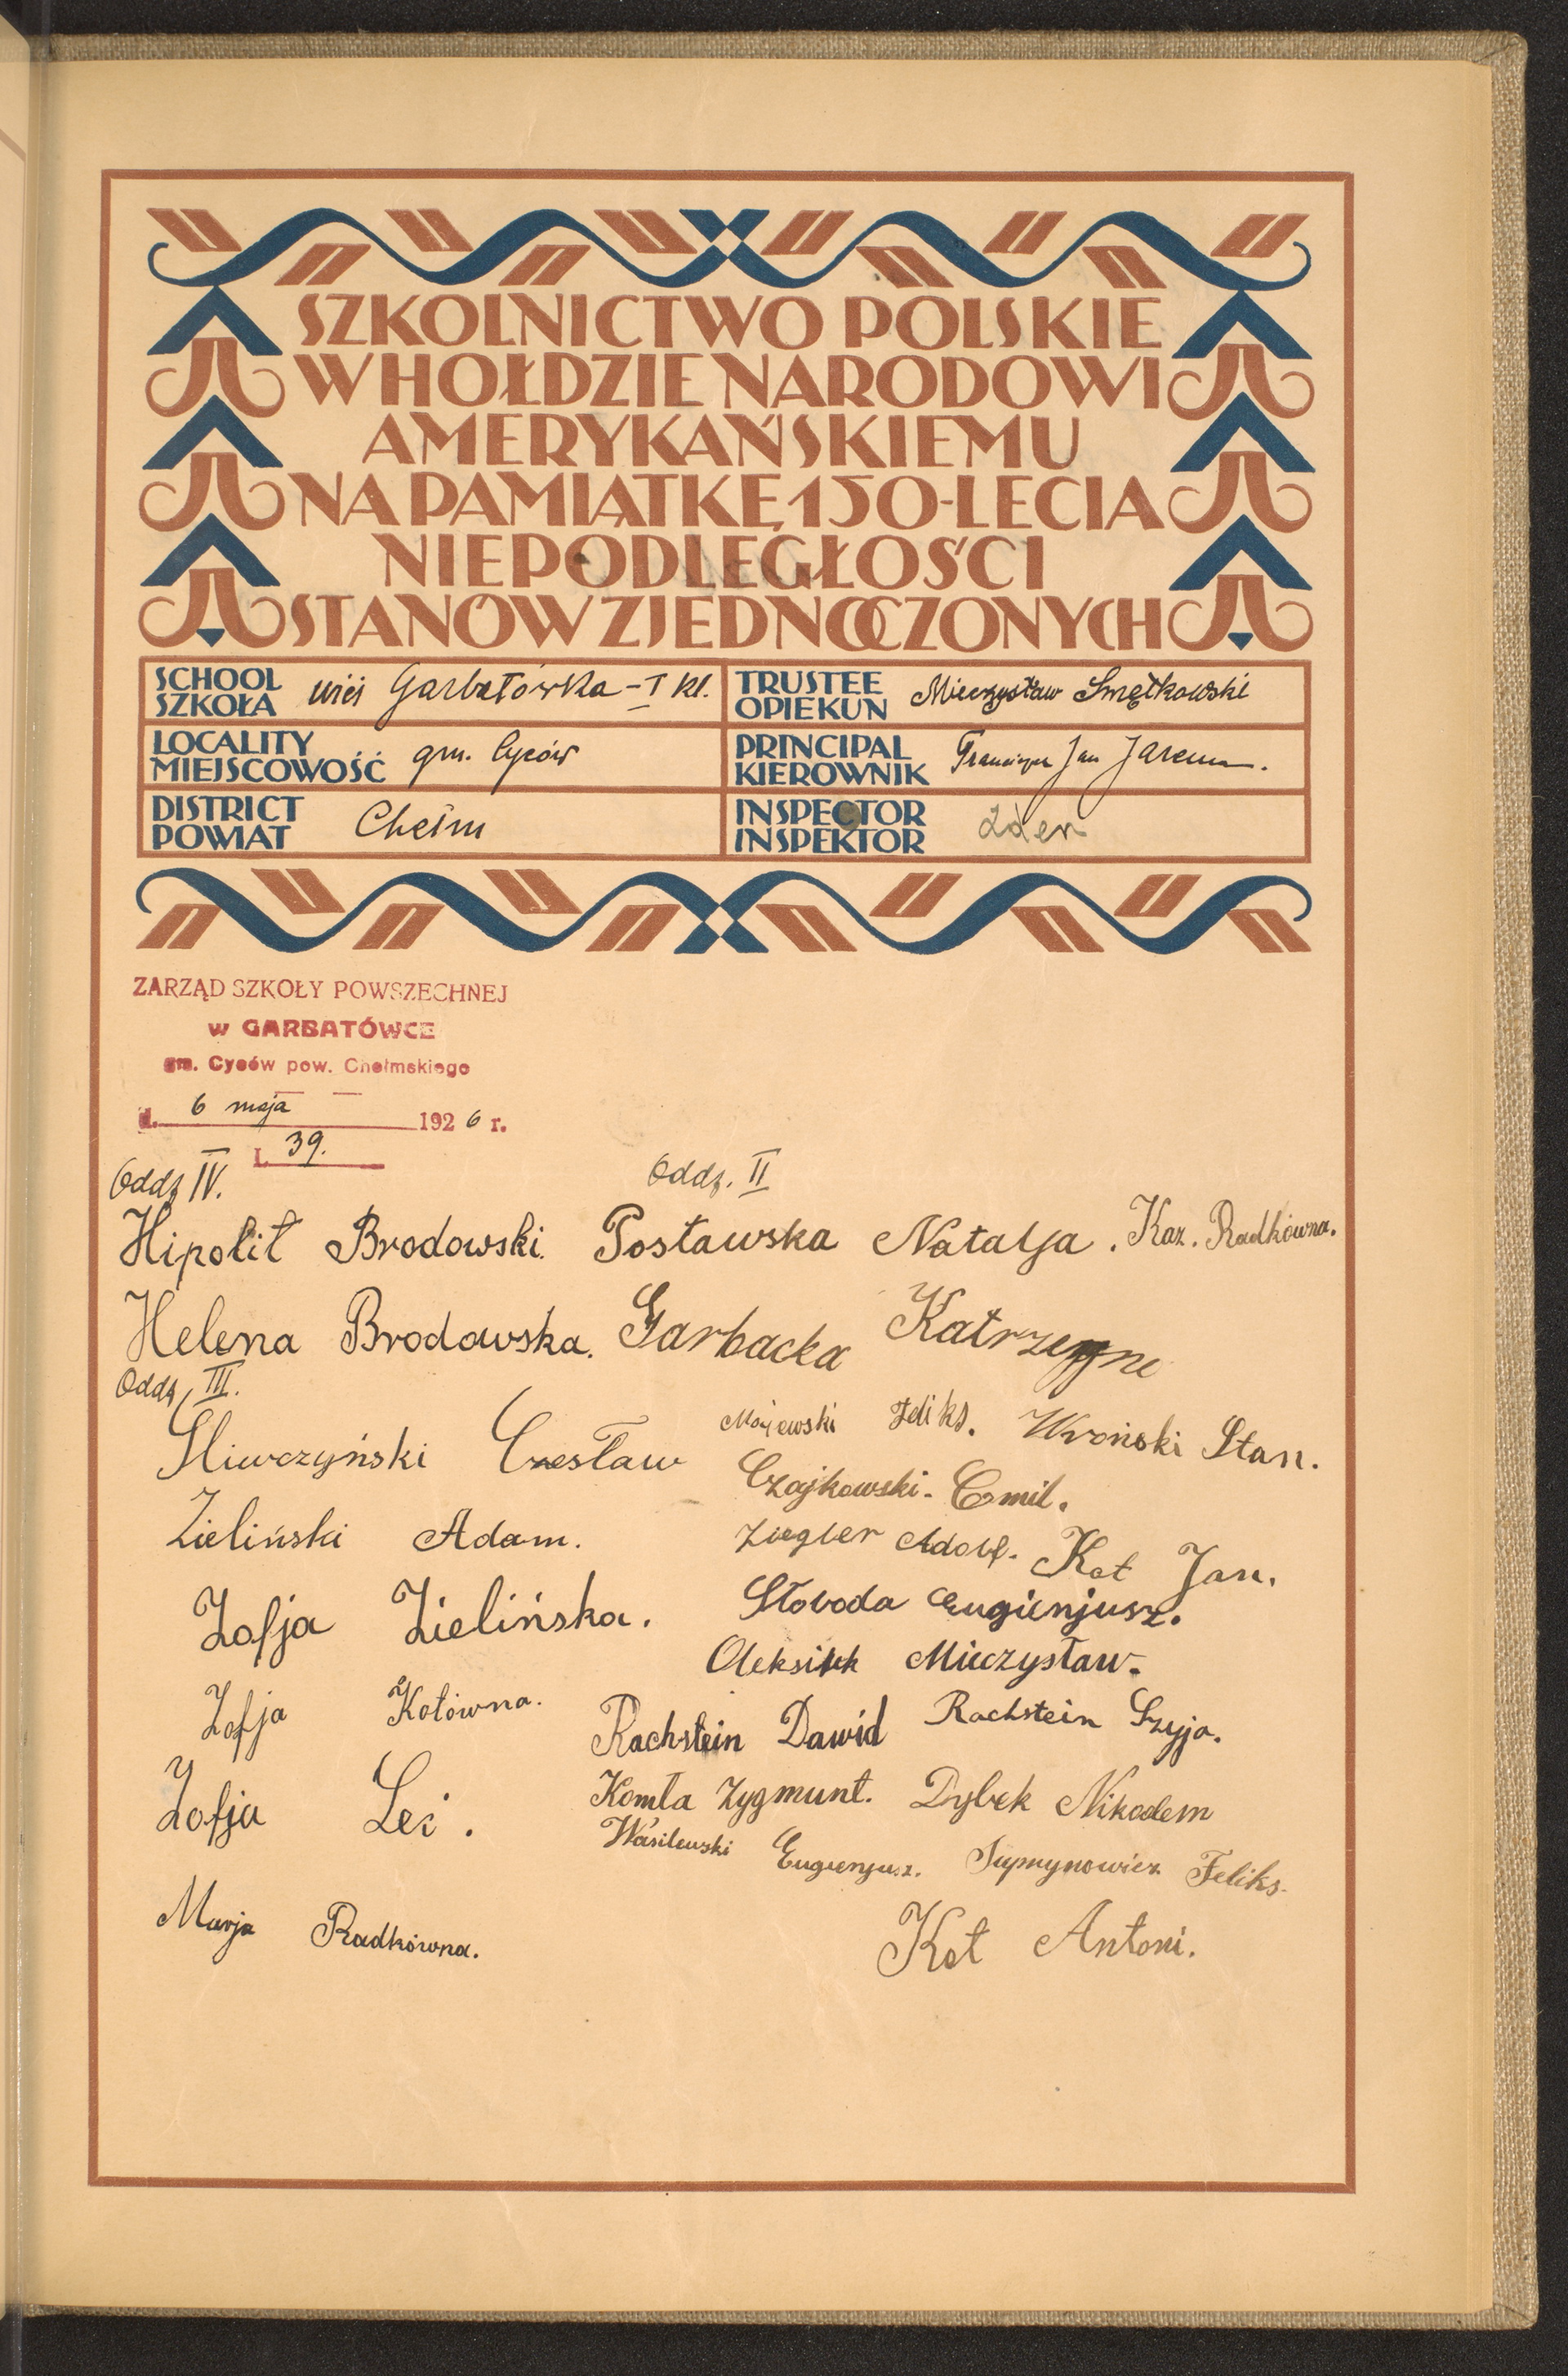 SZKOLNICTWO POLSKIE
W HOŁDZIE NARODOWI
AMERYKAŃSKIEMU
NA PAMIĄTKĘ 150-LECIA
NIEPODLEGŁOŚCI
STANÓW ZJEDNOCZONYCH
SCHOOL
SZKOŁA
wieś Garbatówka - I kl.
TRUSTEE
OPIEKUN
Mieczysław Smętkowski
LOCALITY
MIEJSCOWOŚĆ
gm. Cyców
PRINCIPAL
KIEROWNIK
Franciszek Jan
DISTRICT
POWIAT
Chełm
INSPECTOR
INSPEKTOR
ZARZĄD SZKOŁY POWSZECHNEJ
w GARBATÓWCE
gm. Cyców pow. Chełmskiego
d. 6 maja 1926 r.
L. 39.
Oddz IV.
Hipolit Brodowski.
Helena Brodowska.
Oddz, III.
Śliwczyński Czesław
Zieliński Adam.
Zofja Zielińska.
Zofja Kotówna.
Zofja Leć.
Marja Radkówna.
Oddz. II
Postawska Natalja. Kaz. Radkówna.
Garbacka
Majewski Feliks. Wroński Stan.
Czajkowski - Emil.
Ziegler Adolf. Kot Jan.
Słoboda Eugienjusz.
Oleksiuk Mieczysław.
Rachstein Dawid Rachstein Szyja.
Komła Zygmunt. Dybek Nikodem
Wasilewski Eugienjusz. Feliks.
Kot Antoni.